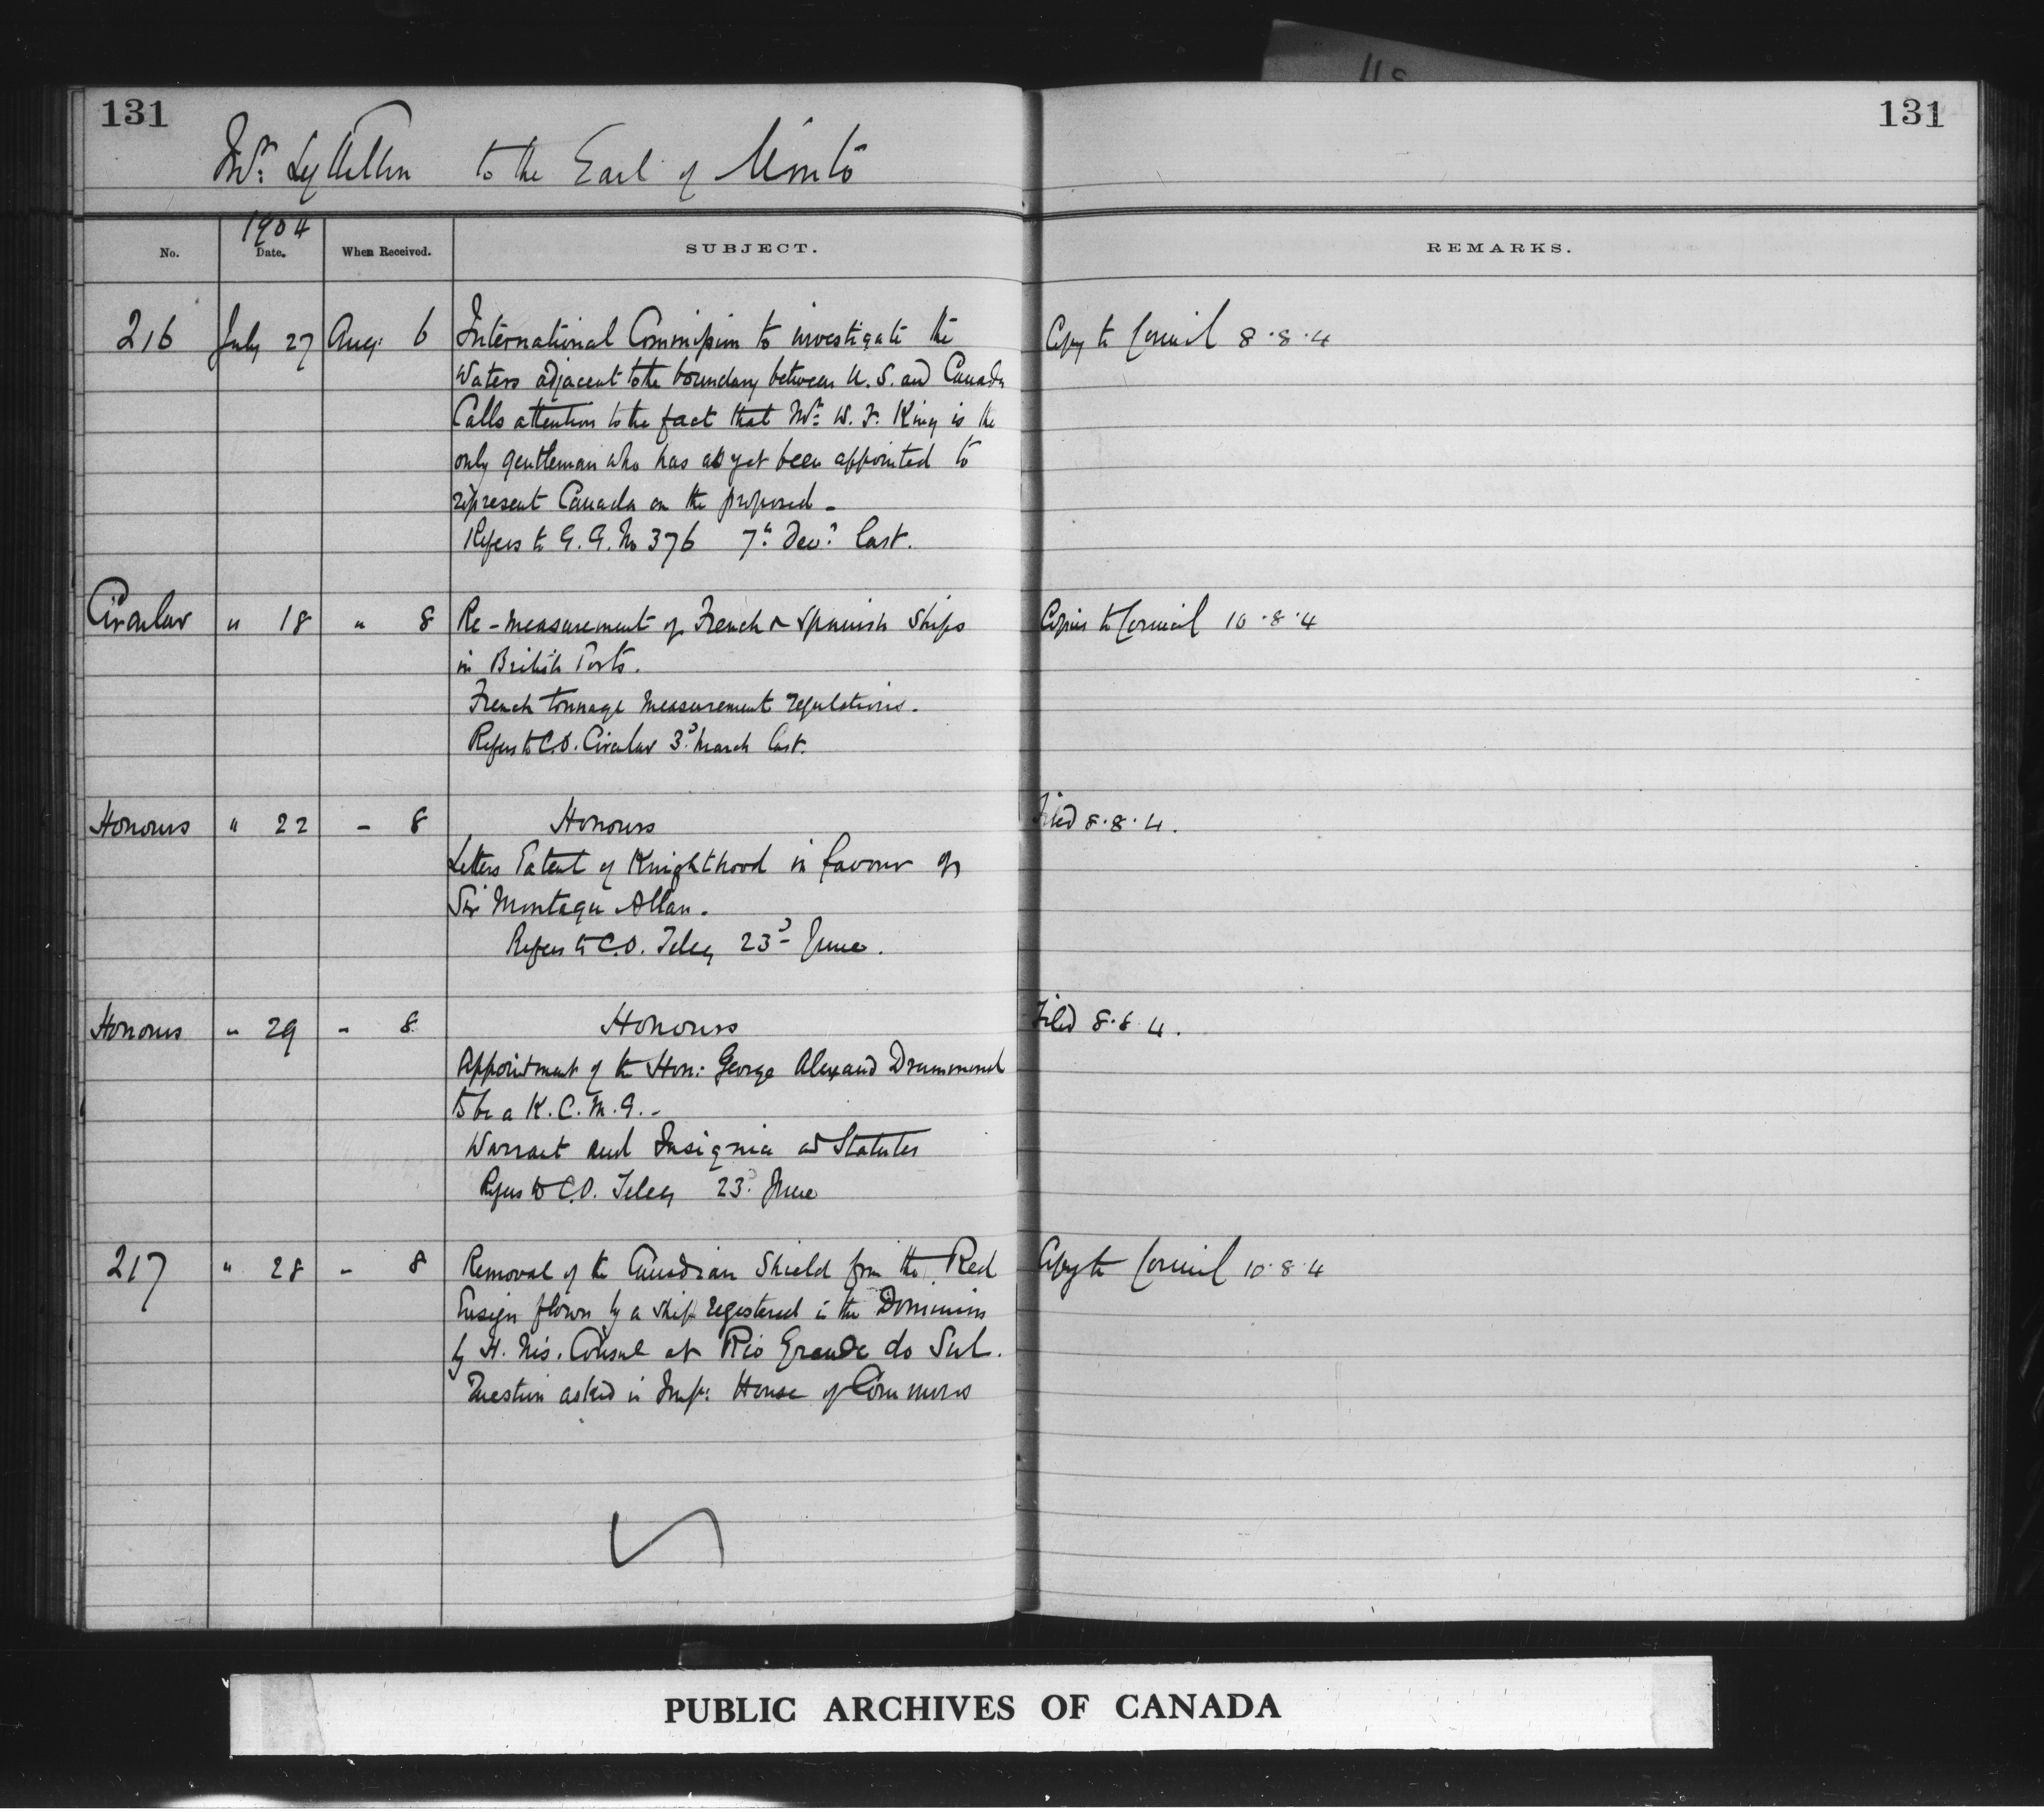 131
131
Mr. Lyttelton to the Earl of Minto
1904
No.
Date.
When Received.
SUBJECT.
REMARKS.
216 July 27 Aug: 6 International Commission to investigate the Copy to Council 8.8.4
Waters adjacent to the boundary between U.S. and Canada
Calls attention to the fact that Mr. W. F. King is the
only gentleman who has as yet been appointed to
represent Canada on the proposed -
Refers to G.G. No 376 7th Dec. last.
Circular " 18 " 8 Re-measurement of French & Spanish Ships Copies to Council 10.8.4
in British Ports.
French tonnage measurement regulations.
Refers to C.O. Circular 3d March last.
Honours " 22 - 8 Honours Filed 8.8.4.
Letters Patent of Knighthood in favour of
Sir Montagu Allan.
Refers to C.O. Teleg 23d June.
Honours " 29 " 8 Honours Filed 8.8.4.
Appointment of the Hon: George Alexand Drummond
to be a K.C.M.G. -
Warrant and Insignia and Statutes
Refers to C.O. Teleg 23d June
217 " 28 - 8 Removal of the Canadian Shield from the Red Copy to Council 10.8.4
Ensign flown by a ship registered in the Dominion
by H. M's. Consul at Rio Grande do Sul.
Question asked in Imp: House of Commons
PUBLIC ARCHIVES OF CANADA